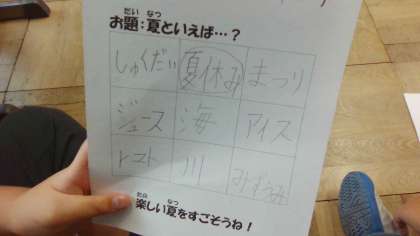 だい なつ
お題:夏といえば…?
しゅくだい 夏休み まつり
ジュース 海 アイス
トマト 川 みずうみ
たの なつ
楽しい夏をすごそうね!